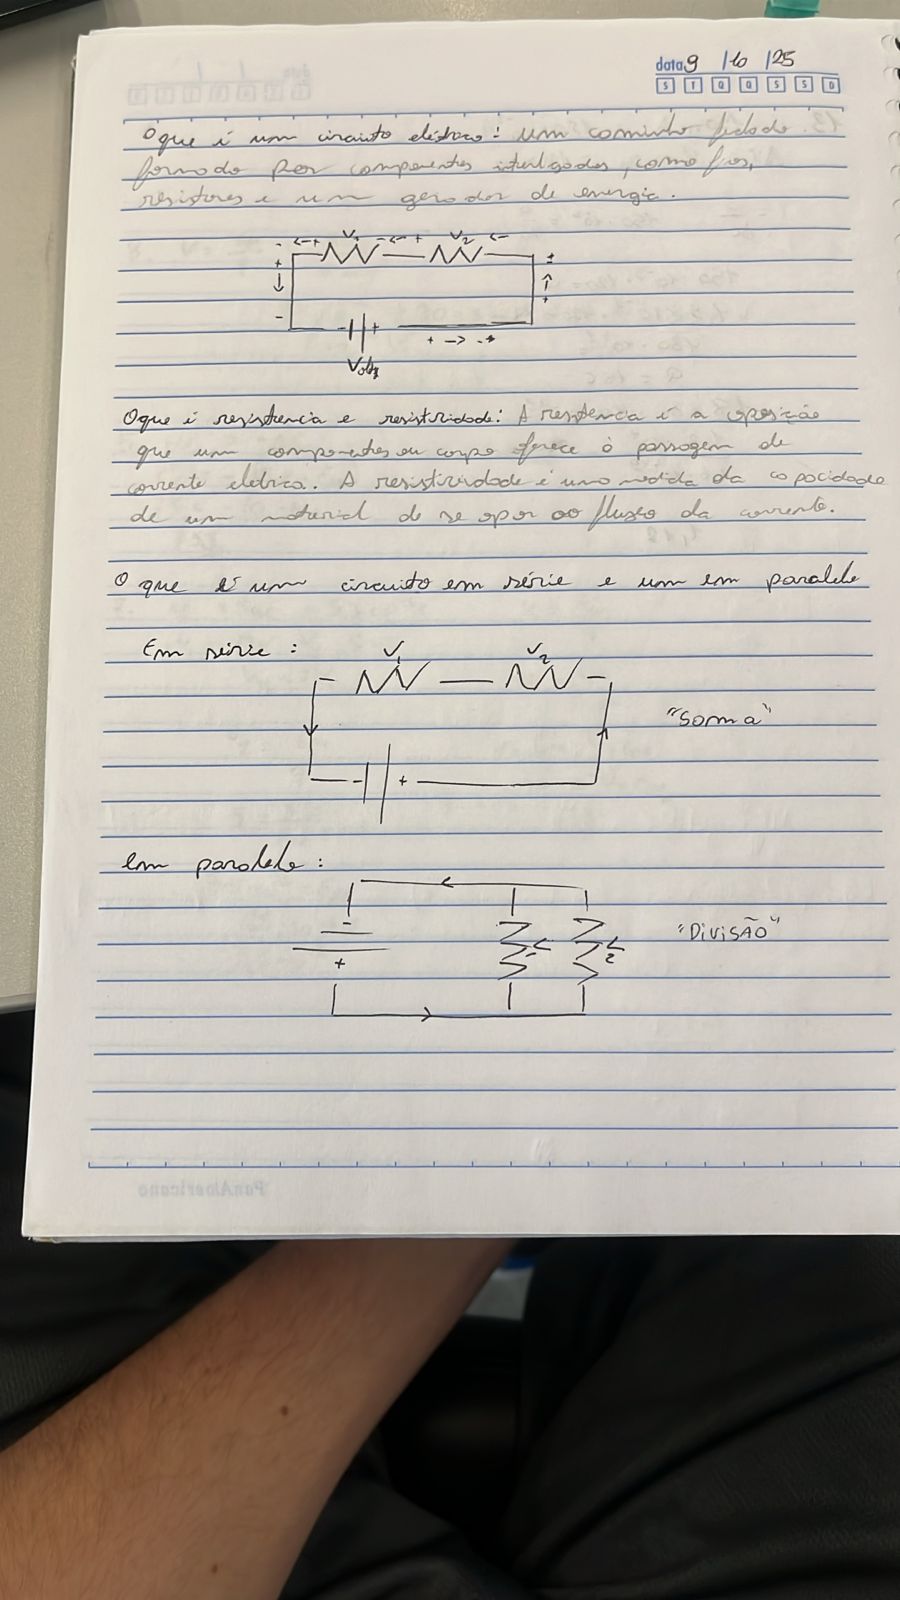 data 9 /10 /25
S T Q Q S S D
O que é um circuito elétrico: um caminho fechado
formado por componentes interligados, como fios,
resistores e um gerador de energia.
- <-+ V1 -<-+ V2 <-
+ ±
- +
- +
+ -> -+
Volts
O que é resistencia e resistividade: A resistencia é a oposição
que um componentes ou corpo oferece à passagem de
corrente eletrica.. A resistividade é uma medida da capacidade
de um material de se opor ao fluxo da corrente.
O que é um circuito em série e um em paralelo
Em série:
V1 V2
"Soma"
- +
em paralelo:
-
"DivisÃo"
+
PanAmericano